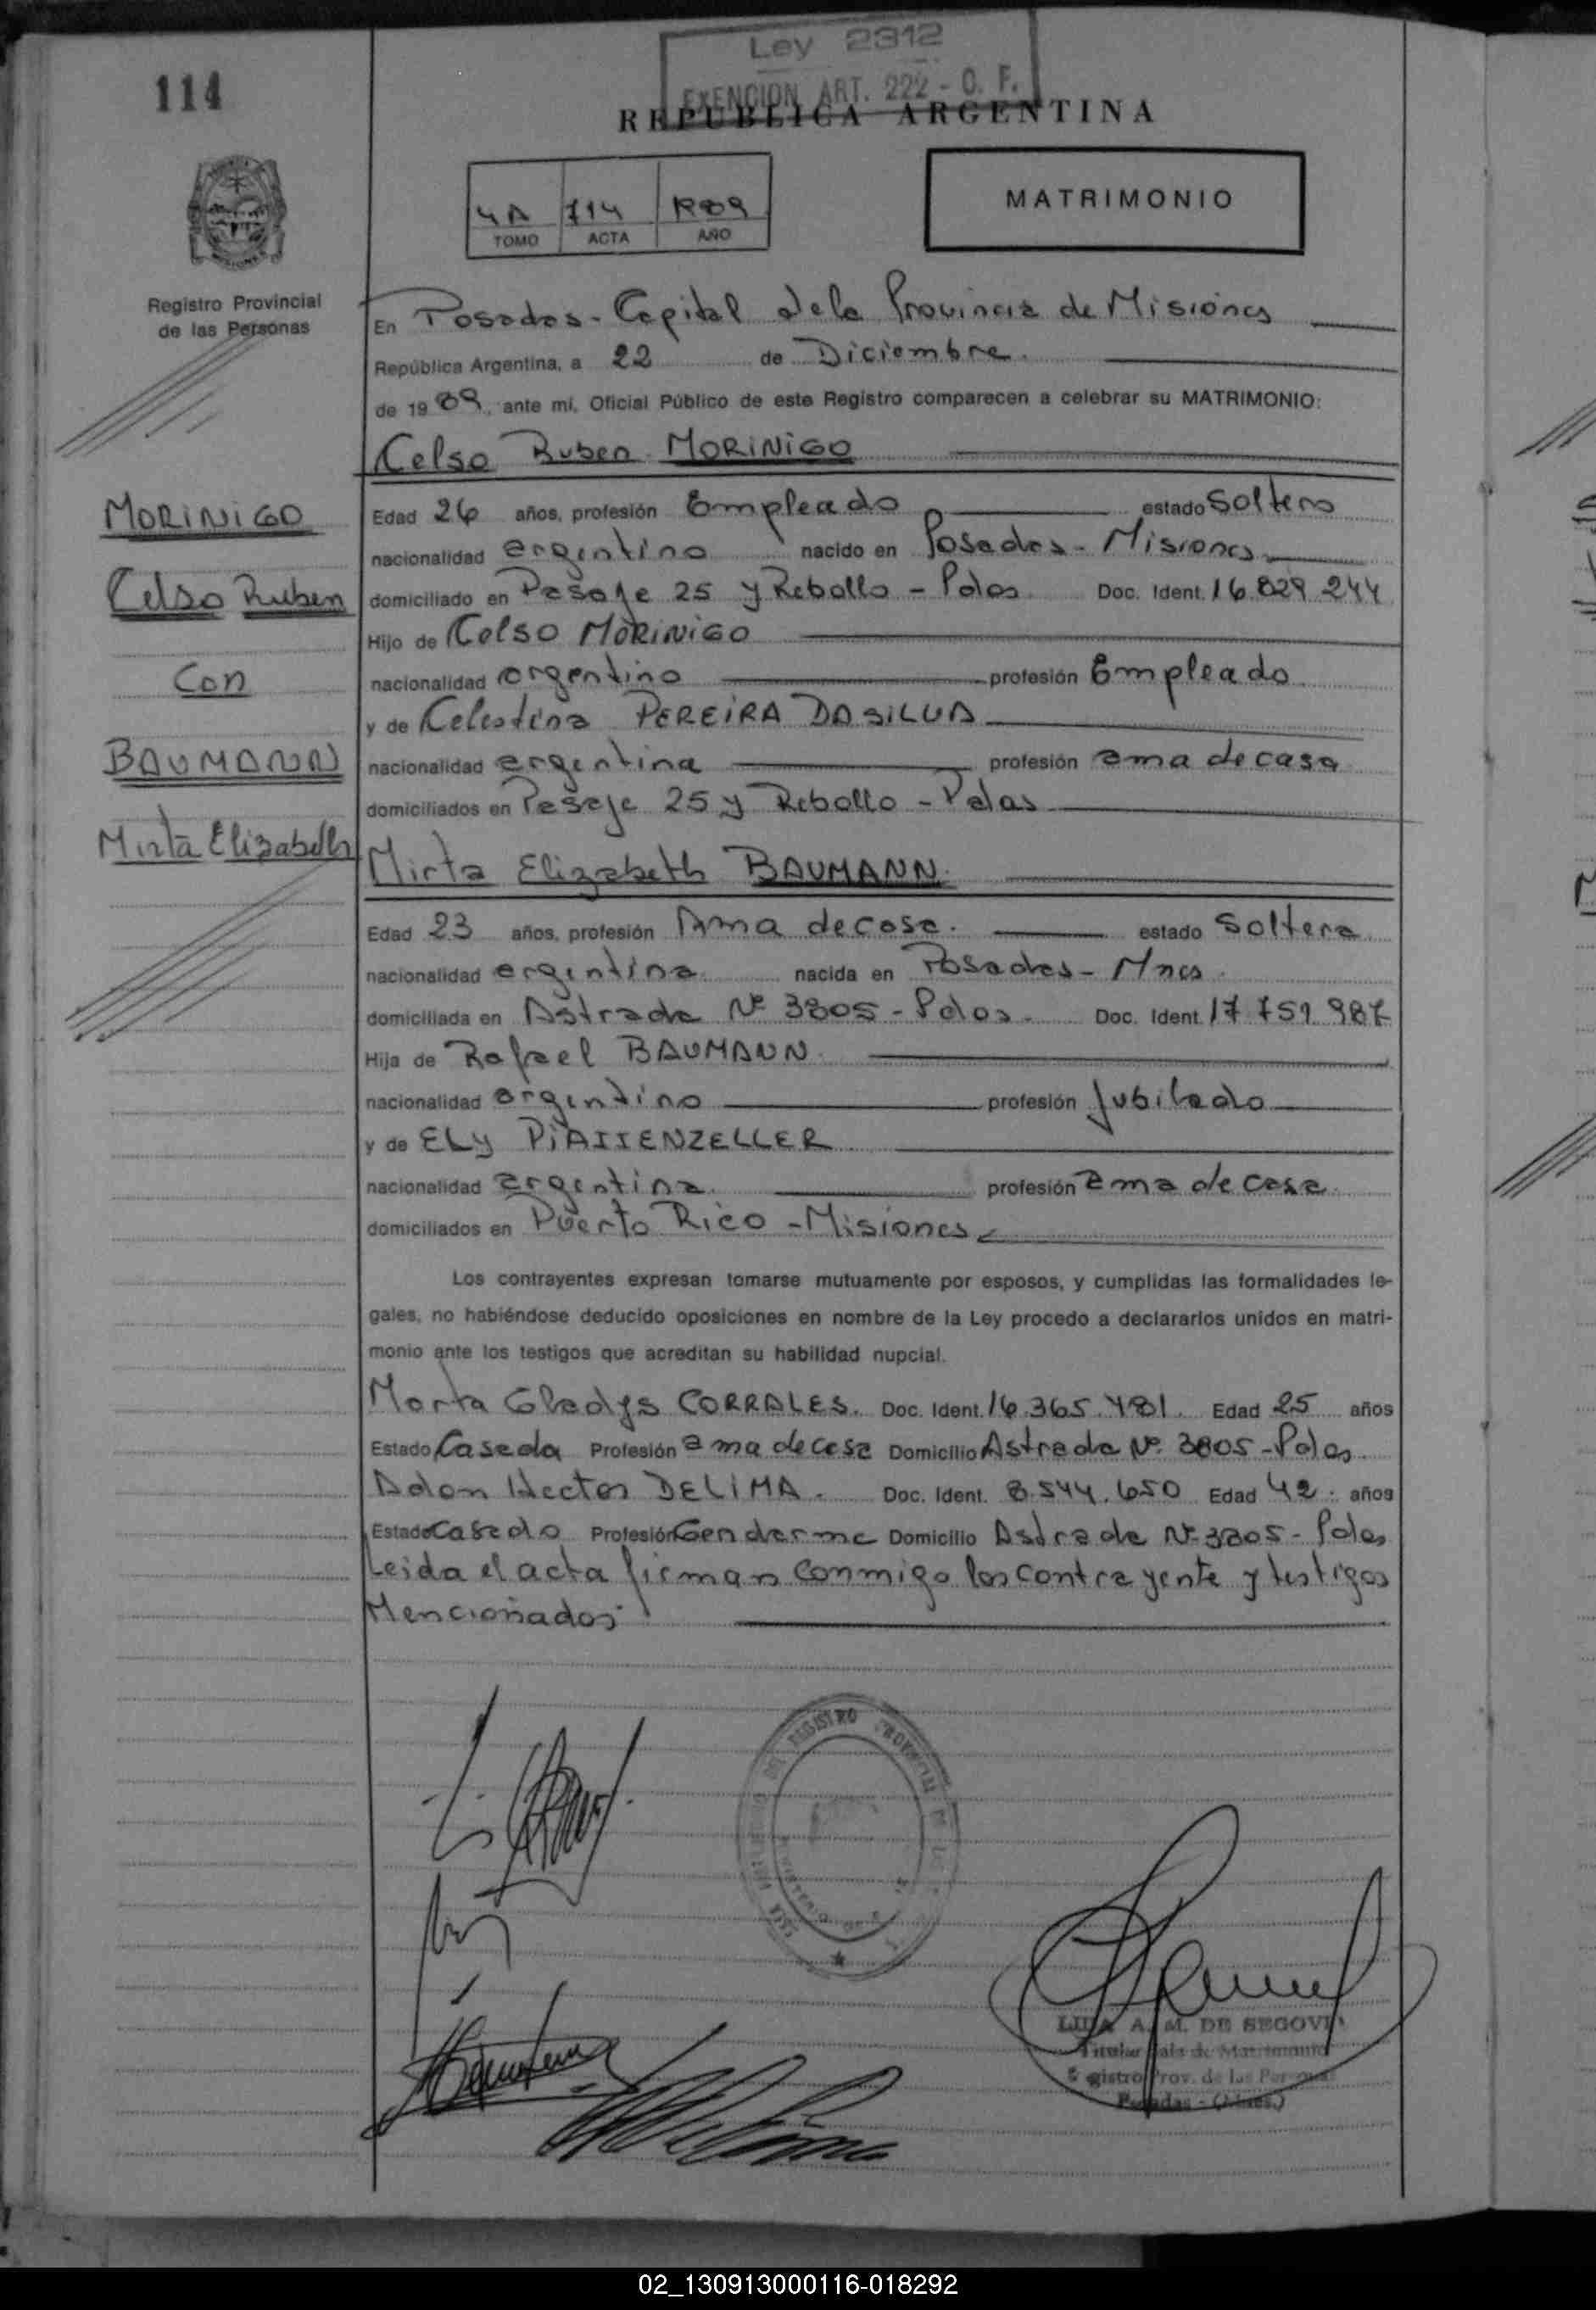 114
Ley 2312
EXENCION ART. 222 - O. F.
REPUBLICA ARGENTINA
4A 114 1989
TOMO ACTA AÑO
MATRIMONIO
Registro Provincial
de las Personas
En Posadas - Capital de la Provincia de Misiones
República Argentina, a 22 de Diciembre.
de 1989, ante mí, Oficial Público de este Registro comparecen a celebrar su MATRIMONIO:
Celso Ruben MORINIGO
MORINIGO
Celso Ruben
Con
BAUMANN
Mirta Elizabeth
Edad 26 años, profesión Empleado estado Soltero
nacionalidad argentino nacido en Posadas - Misiones
domiciliado en Pasaje 25 y Rebollo - Pdas Doc. Ident. 16.829.244
Hijo de Celso MORINIGO
nacionalidad argentino profesión Empleado
y de Celestina PEREIRA DASILVA
nacionalidad argentina profesión ama de casa
domiciliados en Pasaje 25 y Rebollo - Pdas
Mirta Elizabeth BAUMANN.
Edad 23 años, profesión Ama de casa. estado Soltera
nacionalidad argentina nacida en Posadas - Mnes.
domiciliada en Astrada Nº 3805 - Pdas. Doc. Ident. 17.759.987
Hija de Rafael BAUMANN.
nacionalidad argentino profesión Jubilado
y de ELY
nacionalidad argentina. profesión ama de casa
domiciliados en Puerto Rico - Misiones
Los contrayentes expresan tomarse mutuamente por esposos, y cumplidas las formalidades le-
gales, no habiéndose deducido oposiciones en nombre de la Ley procedo a declararlos unidos en matri-
monio ante los testigos que acreditan su habilidad nupcial.
Marta Gladys CORRALES. Doc. Ident. 16.365.481. Edad 25 años
Estado Casada Profesión ama de casa Domicilio Astrada Nº 3805 - Pdas
Adan Hector DELIMA. Doc. Ident. 8.544.650 Edad 42 años
Estado Casado Profesión Gendarme Domicilio Astrada Nº 3805 - Pdas
Leida el acta firman conmigo los contrayente y testigos
Mencionados
REGISTRO PROVINCIAL DE
LIDA A. M. DE SEGOVIA
Titular Sala de Matrimonio
Registro Prov. de las Personas
Posadas - (Mnes.)
02_130913000116-018292